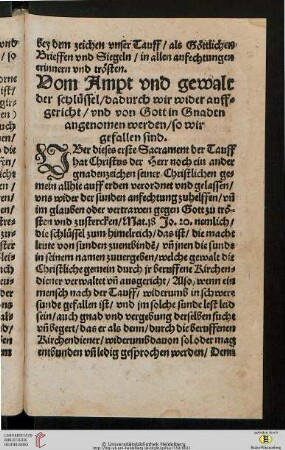 bey dem zeichen vnser Tauff / als Göttlichen
Brieffen vnd Siegeln / in allen anfechtungen
erinnern vnd trösten.
Vom Ampt vnd gewalt
der schlüssel / dadurch wir wider auff-
gericht / vnd von Gott in Gnaden
angenomen werden / so wir
gefallen sind.
Vber dieses erste Sacrament der Tauff
hat Christus der Herr noch ein ander
gnadenzeichen seiner Christlichen ge-
mein allhie auff erden verordnet vnd gelassen /
vns wider der sunden anfechtung zuhelffen / vñ
im glauben oder vertrawen gegen Gott zu trö-
sten vnd zustercken / Mat. 18 Jo. 20. nemlich /
die schlüssel zum himelreich / das ist / die macht
leute von sunden zuentbinde / vñ jnen die sunde
in seinem namen zuuergeben / welche gewalt die
Christliche gemein durch jr beruffene Kirchen-
diener verwaltet vñ ausgericht / Also / wenn ein
mensch nach der Tauff / widerumb in schwere
sunde gefallen ist / vnd jm solche sünde left leid
sein / auch gnad vnd vergebung derselben sucht
vñ begert / das er als denn / durch die beruffenen
Kirchendiener / widerumb dauon sol oder mag
entbunden vñ ledig gesprochen werden / Denn
© Universitätsbibliothek Heidelberg